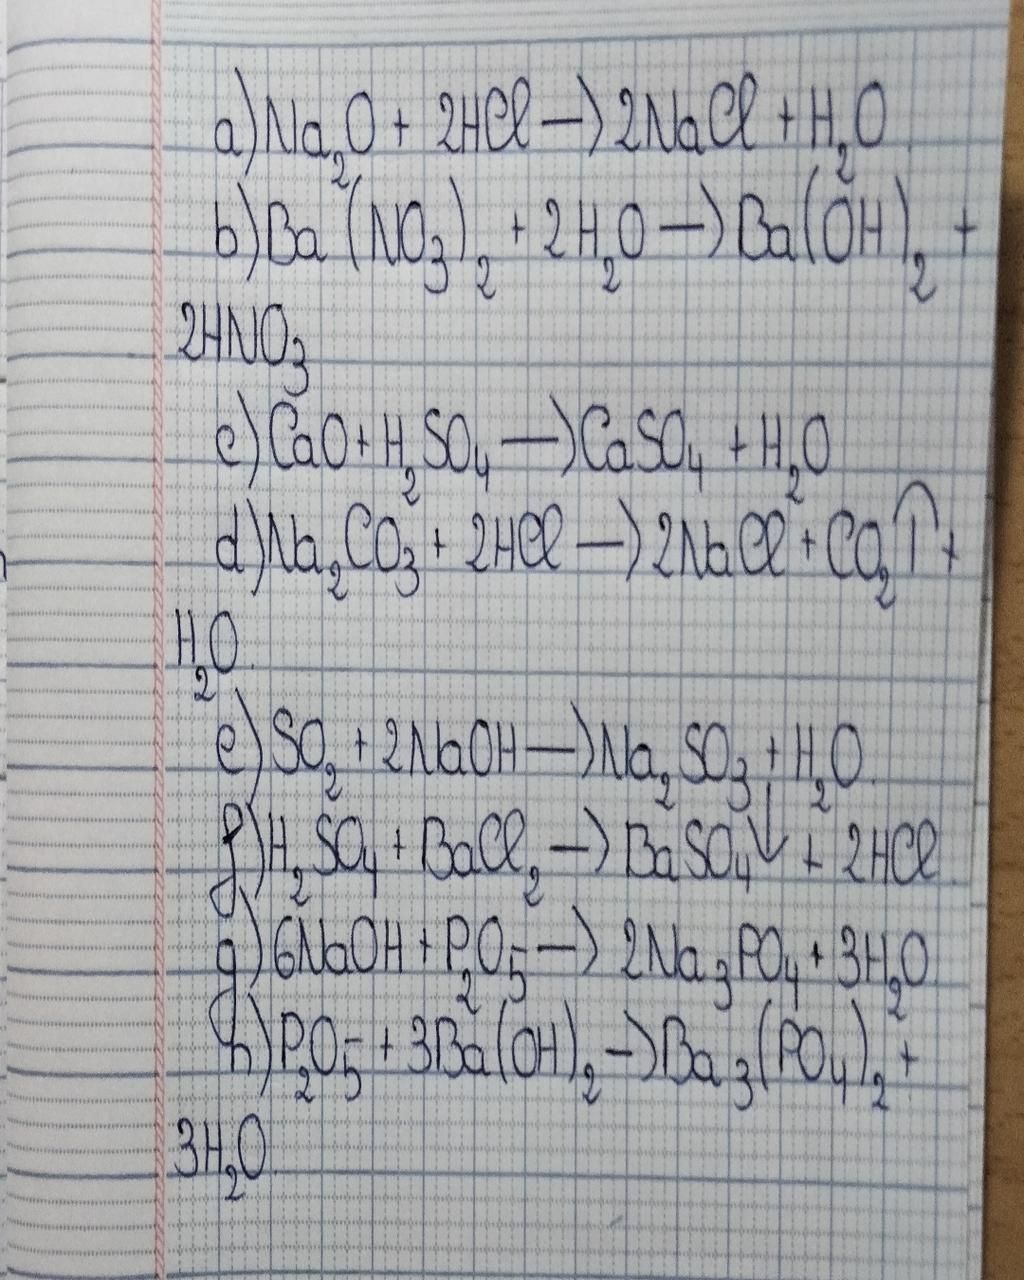 a) Na₂O + 2HCl → 2NaCl + H₂O
b) Ba(NO₃)₂ + 2H₂O → Ba(OH)₂ +
2HNO₃
c) CaO + H₂SO₄ → CaSO₄ + H₂O
d) Na₂CO₃ + 2HCl → 2NaCl + CO₂↑ +
H₂O.
e) SO₂ + 2NaOH → Na₂SO₃ + H₂O.
f) H₂SO₄ + BaCl₂ → BaSO₄↓ + 2HCl
g) 6NaOH + P₂O₅ → 2Na₃PO₄ + 3H₂O
h) P₂O₅ + 3Ba(OH)₂ → Ba₃(PO₄)₂ +
3H₂O.